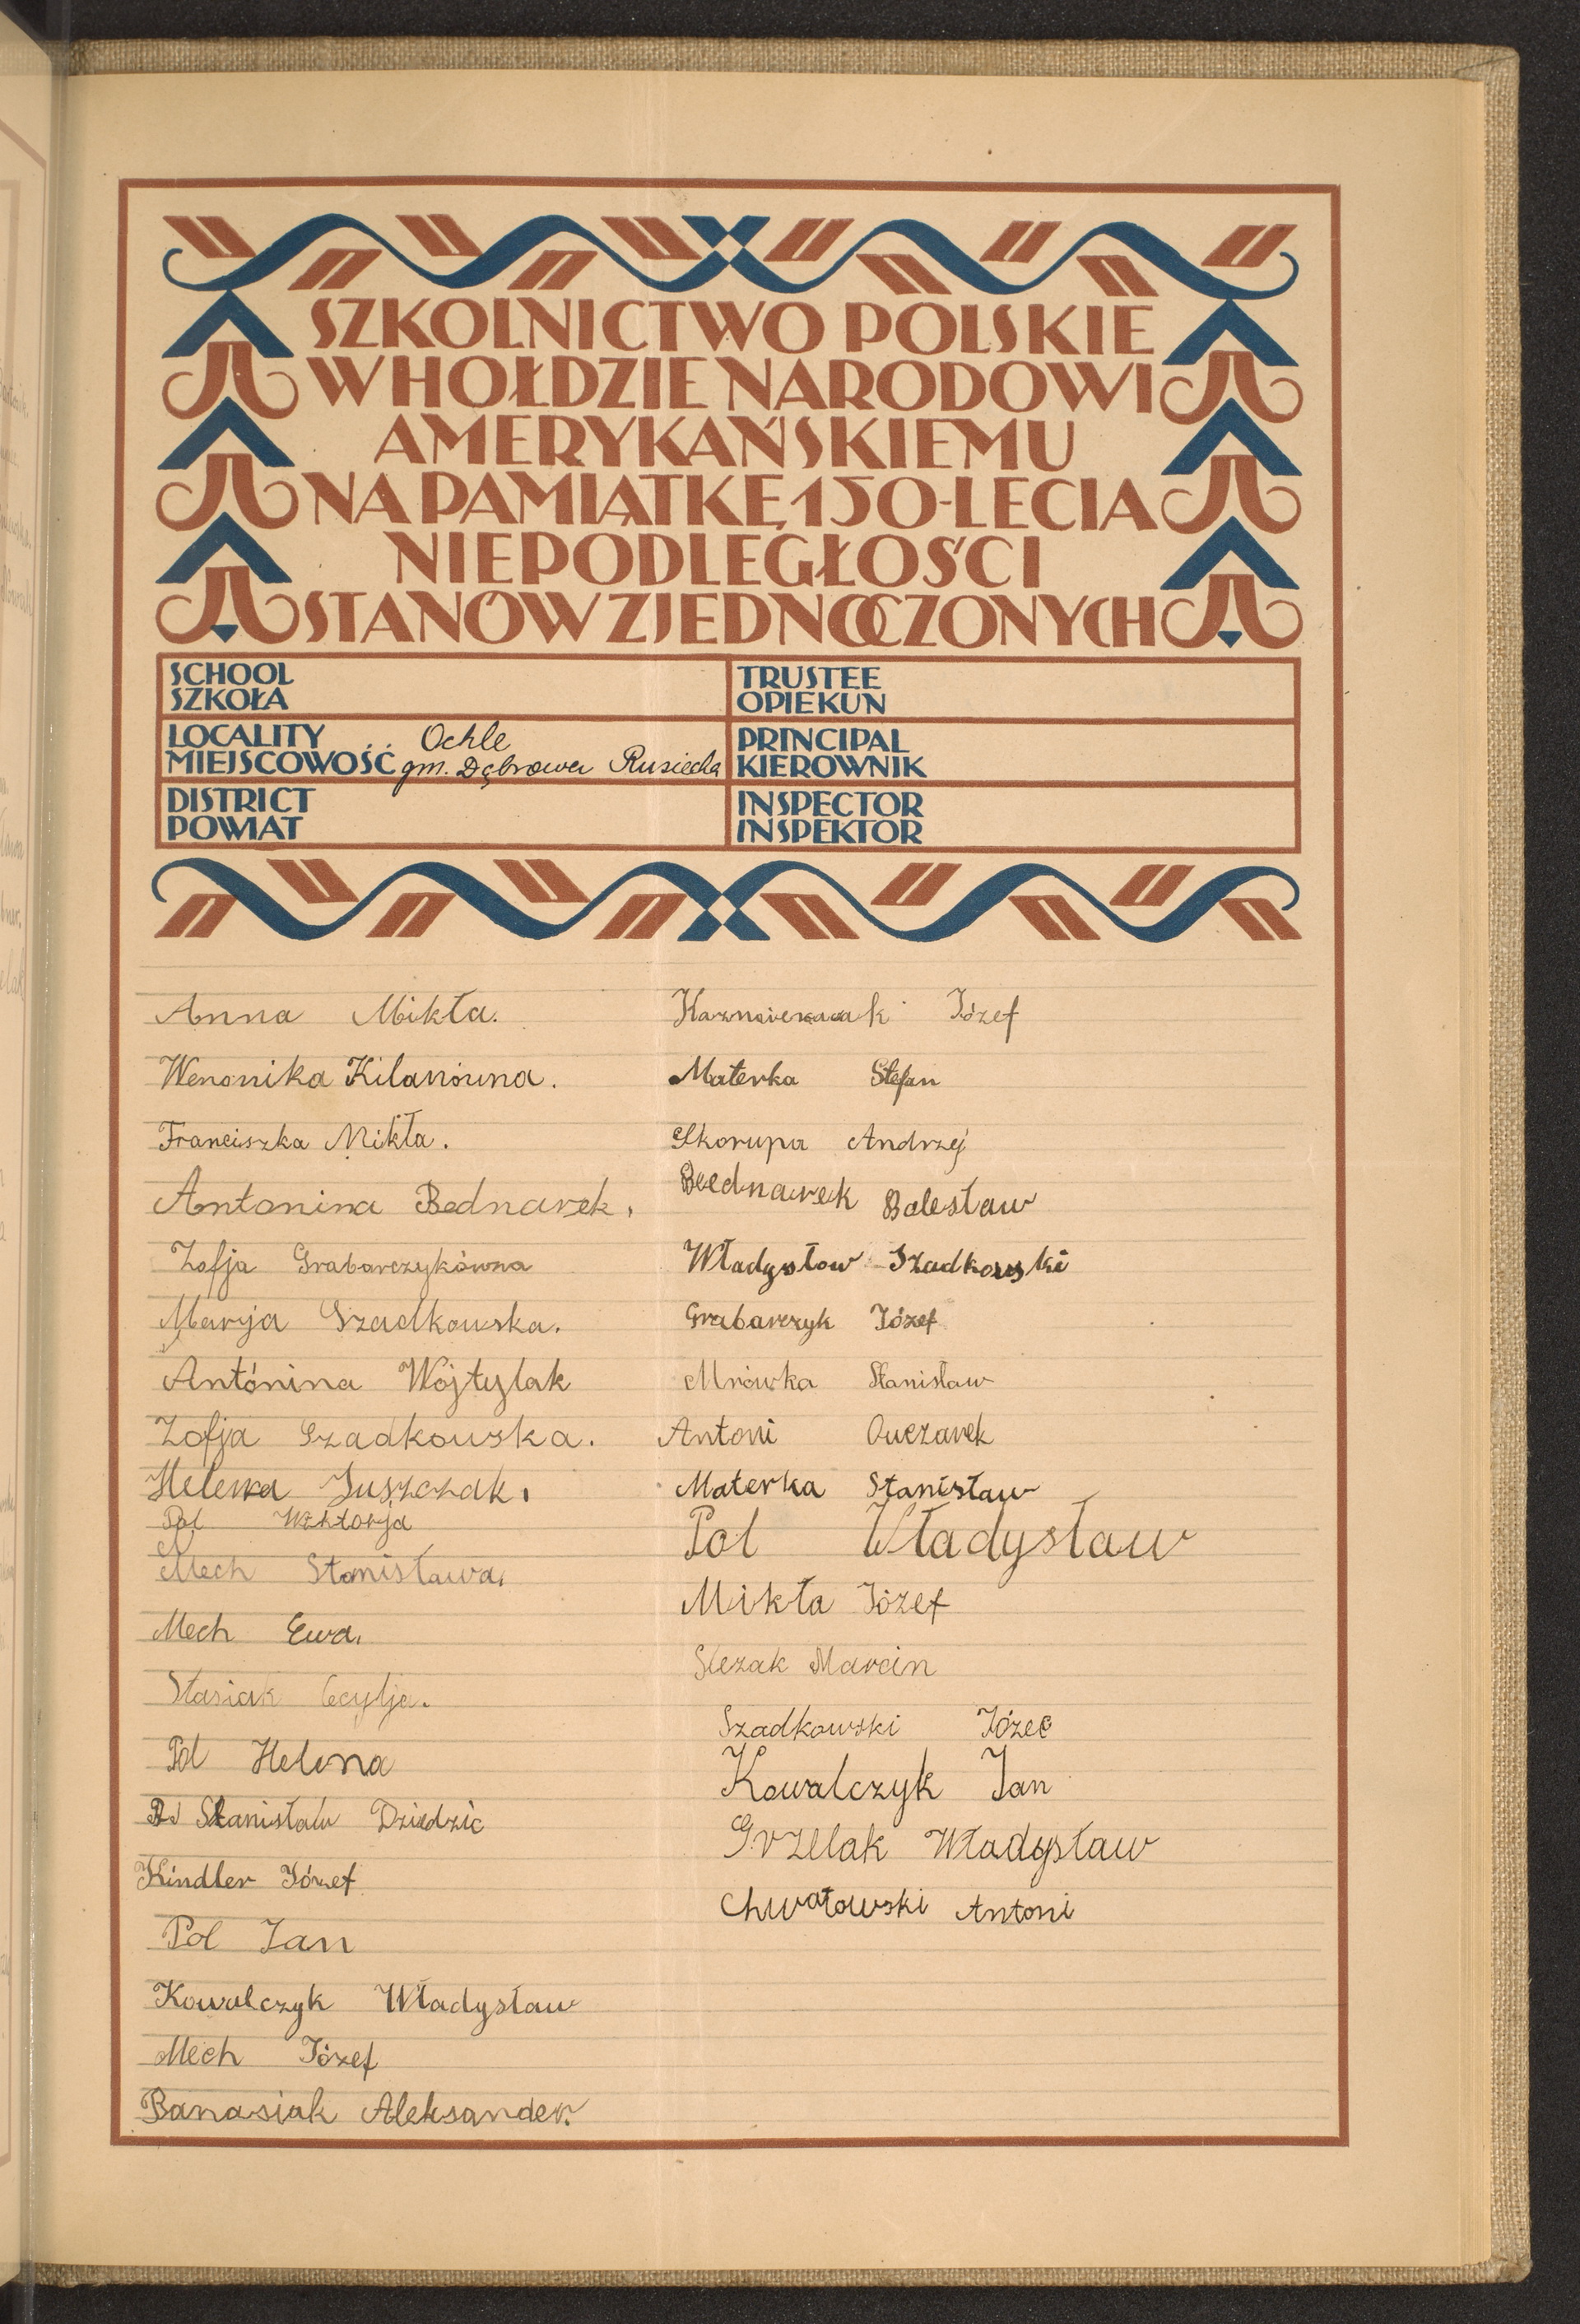 SZKOLNICTWO POLSKIE
W HOŁDZIE NARODOWI
AMERYKAŃSKIEMU
NA PAMIĄTKĘ 150-LECIA
NIEPODLEGŁOŚCI
STANÓW ZJEDNOCZONYCH
SCHOOL
SZKOŁA
TRUSTEE
OPIEKUN
LOCALITY Ochle
MIEJSCOWOŚĆ gm. Dąbrowa Rusiecka
PRINCIPAL
KIEROWNIK
DISTRICT
POWIAT
INSPECTOR
INSPEKTOR
Anna Mikła.
Weronika Kilanówna.
Franciszka Mikła.
Antonina Bednarek.
Zofja Grabarczykówna
Marja Szadkowska.
Antónina Wojtylak
Zofja Szadkowska.
Helena Juszczak.
Pol Wiktorja
Mech Stanisława.
Mech Ewa.
Stasiak Cecylja.
Pol Helena
Stanisław Dziedzic
Kindler Józef
Pol Jan
Kowalczyk Władysław
Mech Józef
Banasiak Aleksander.
Józef
Materka Stefan
Skorupa Andrzej
Bednarek Bolesław
Władysław Szadkowski
Grabarczyk Józef
Mrówka Stanisław
Antoni Owczarek
Materka Stanisław
Pol Władysław
Mikła Józef
Slezak Marcin
Szadkowski Józef
Kowalczyk Jan
Grzelak Władysław
Chwałowski Antoni